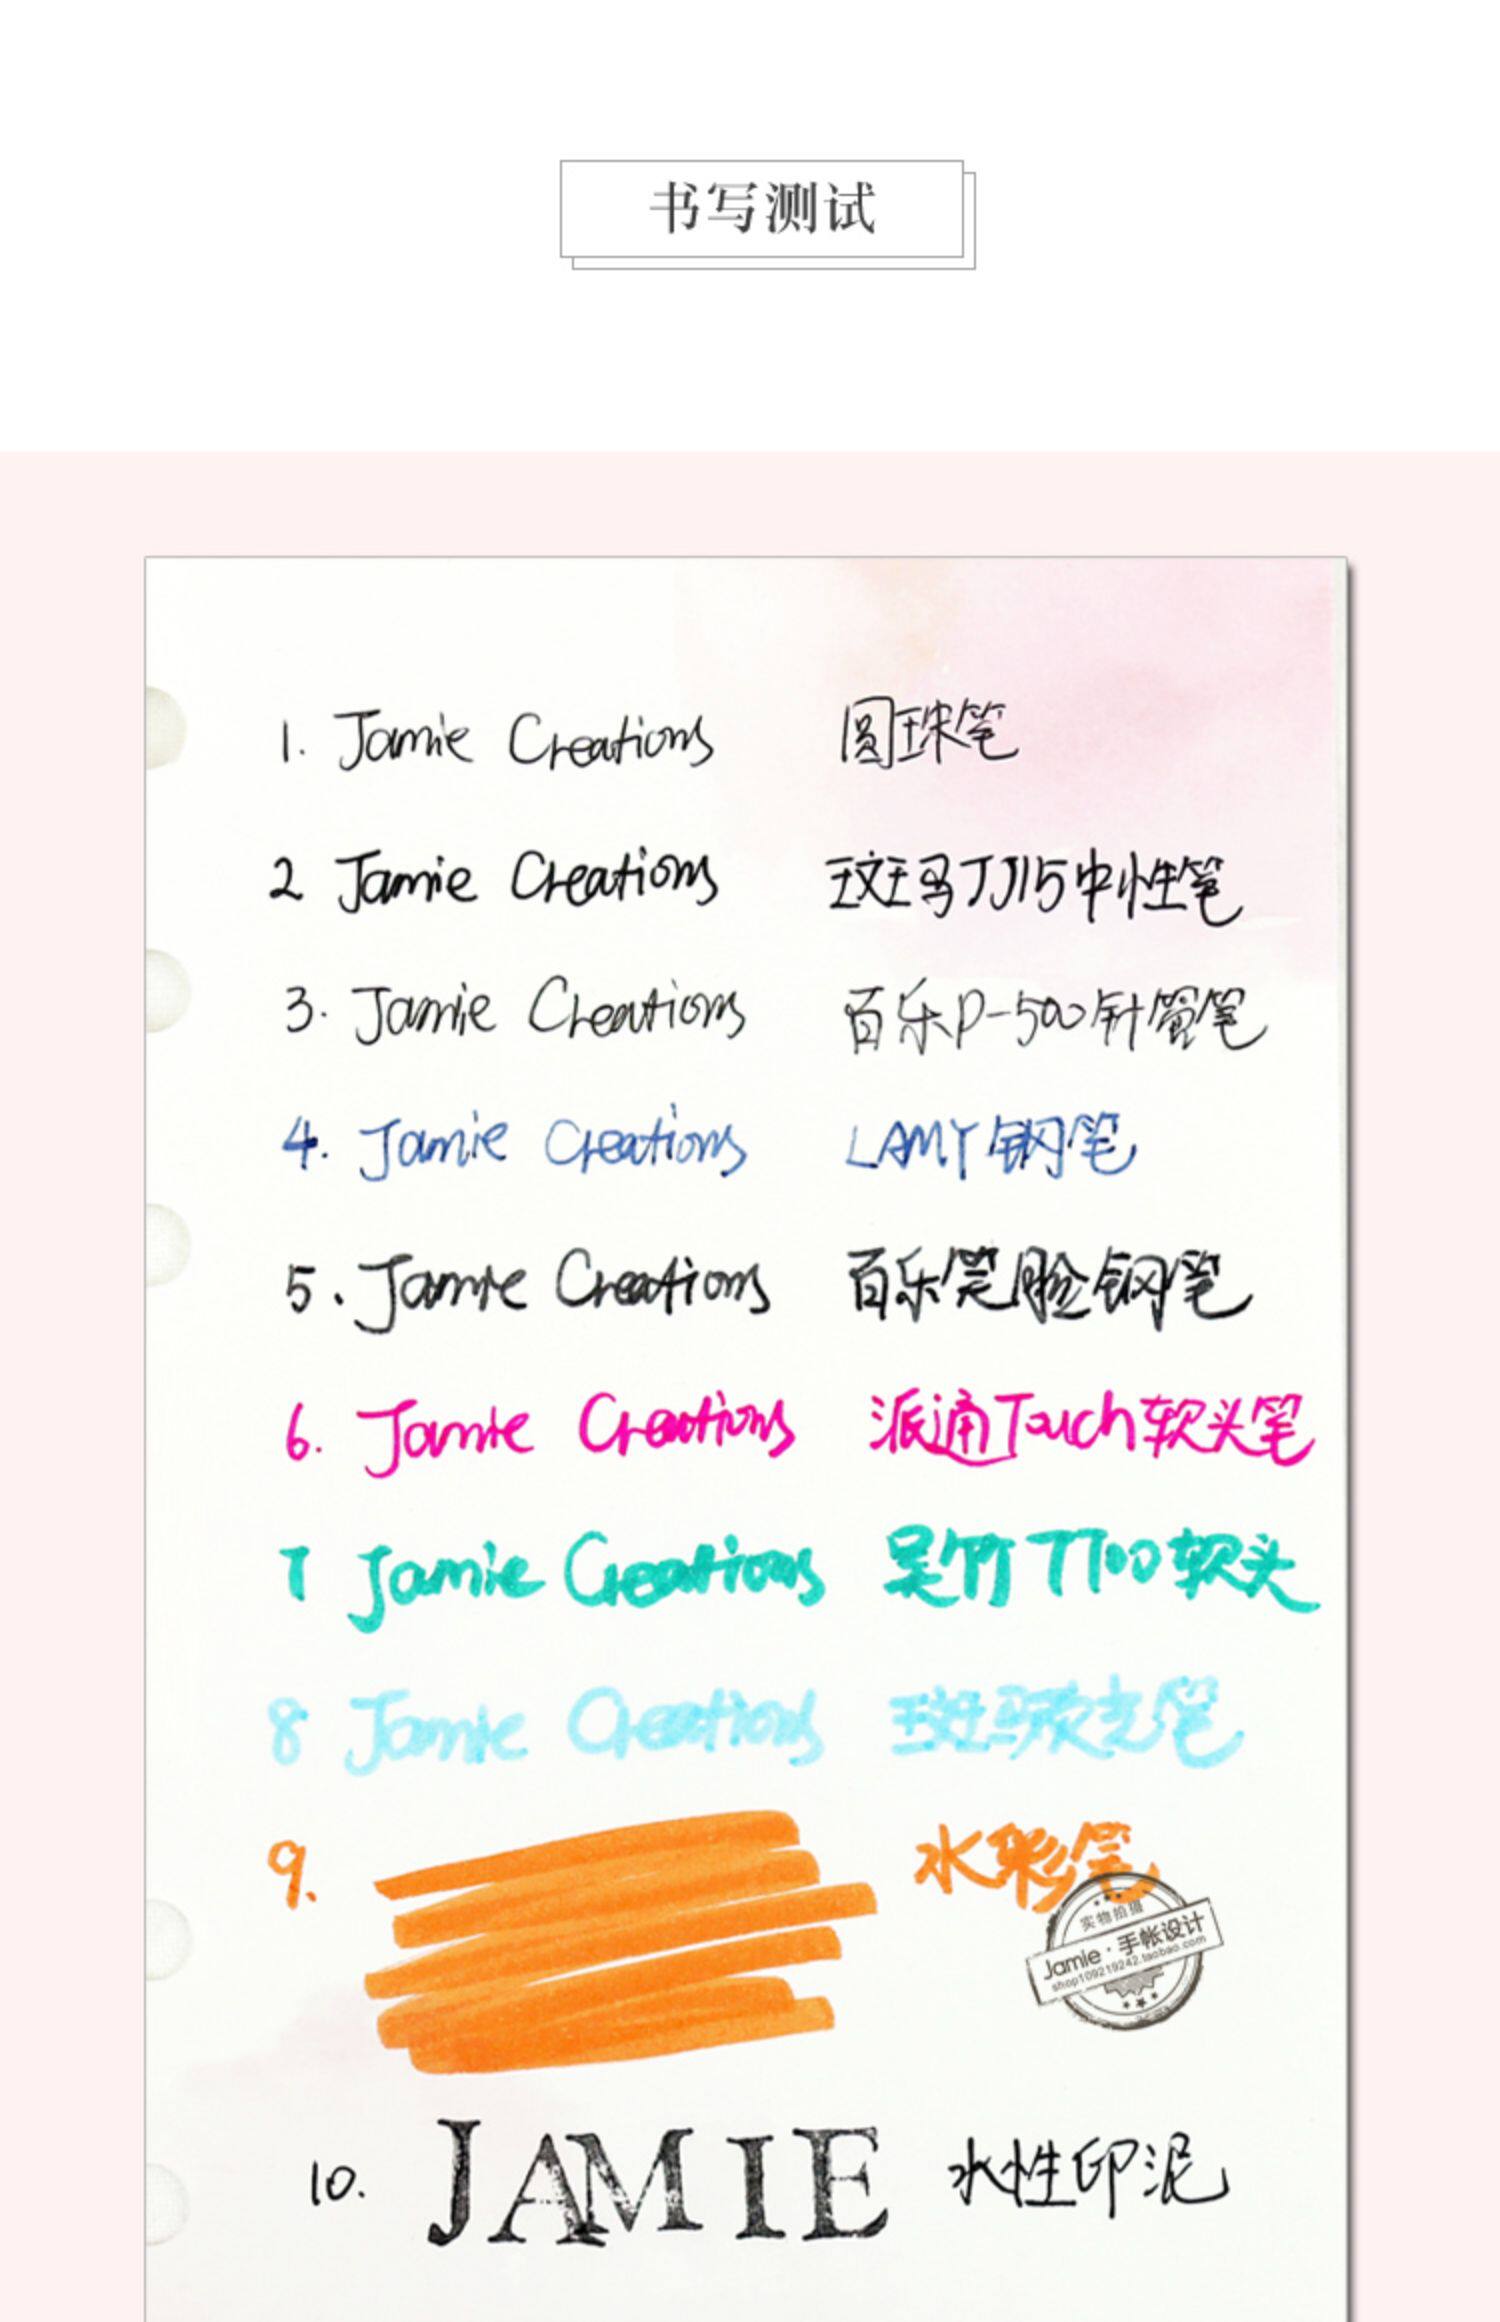 书写测试
1. Jamie Creations 圆珠笔
2 Jamie Creations 斑马JJ15中性笔
3. Jamie Creations 百乐P-500针管笔
4. Jamie Creations LAMY钢笔
5. Jamie Creations 百乐笑脸钢笔
6. Jamie Creations 派通Touch软头笔
7 Jamie Creations 吴竹7700软头
8 Jamie Creations 斑马荧光笔
9. 水彩笔
实物拍摄
Jamie·手帐设计
shop109219242.taobao.com
10. JAMIE 水性印泥